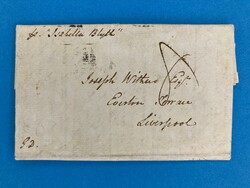 pr. "Isabella Blyth"
Joseph Withers Esq.
Everton Terrace
Liverpool